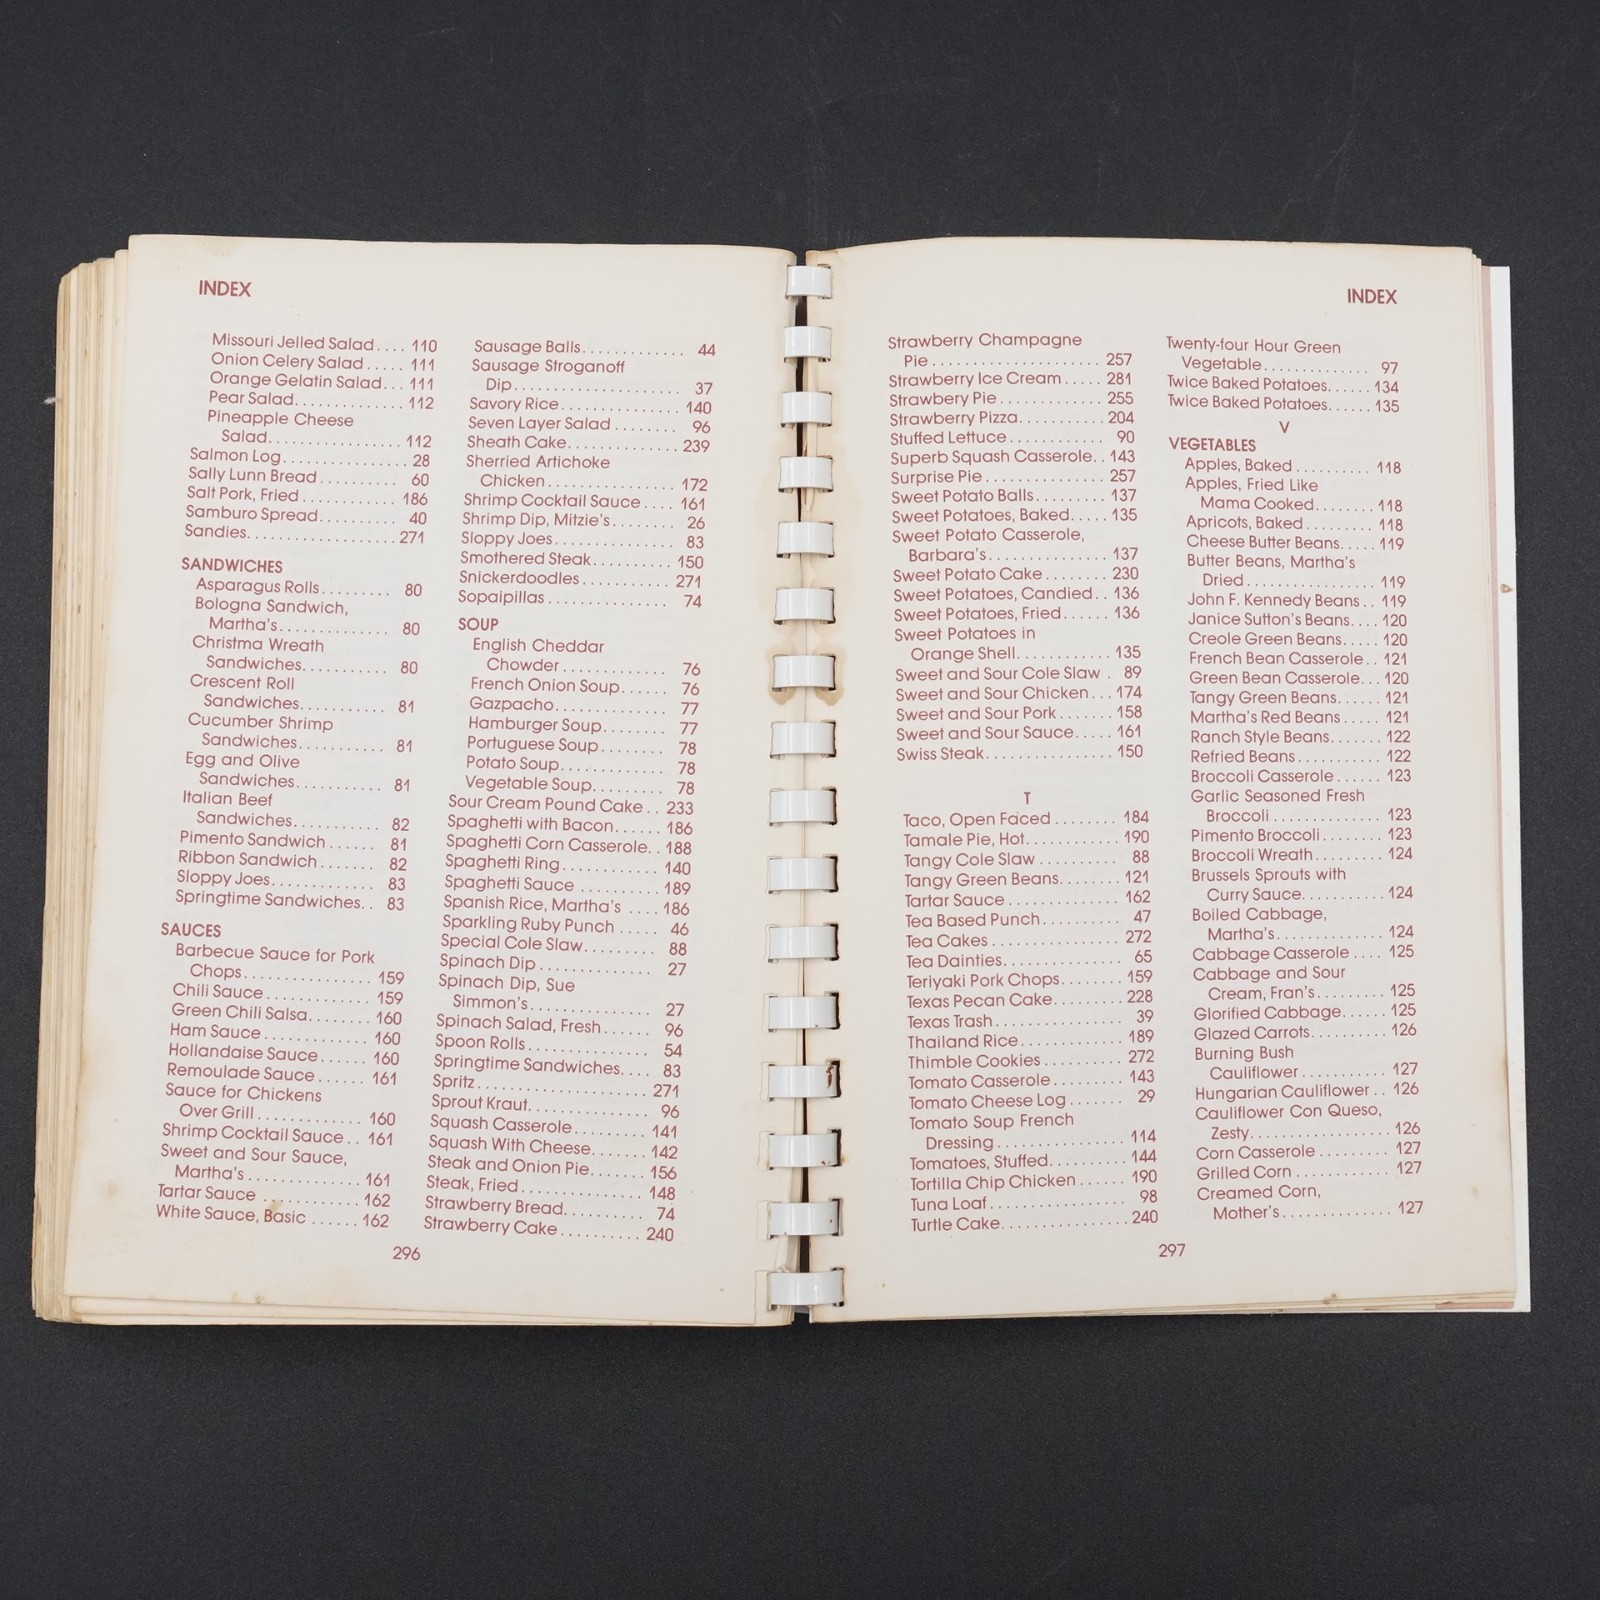 INDEX
Missouri Jelled Salad.... 110
Onion Celery Salad ..... 111
Orange Gelatin Salad... 111
Pear Salad............. 112
Pineapple Cheese
Salad................. 112
Salmon Log............... 28
Sally Lunn Bread.......... 60
Salt Pork, Fried........... 186
Samburo Spread.......... 40
Sandies................... 271
SANDWICHES
Asparagus Rolls......... 80
Bologna Sandwich,
Martha's.............. 80
Christma Wreath
Sandwiches........... 80
Crescent Roll
Sandwiches........... 81
Cucumber Shrimp
Sandwiches........... 81
Egg and Olive
Sandwiches........... 81
Italian Beef
Sandwiches........... 82
Pimento Sandwich ...... 81
Ribbon Sandwich ........ 82
Sloppy Joes............. 83
Springtime Sandwiches.. 83
SAUCES
Barbecue Sauce for Pork
Chops................ 159
Chili Sauce .............. 159
Green Chili Salsa........ 160
Ham Sauce ............. 160
Hollandaise Sauce ...... 160
Remoulade Sauce ...... 161
Sauce for Chickens
Over Grill ............. 160
Shrimp Cocktail Sauce .. 161
Sweet and Sour Sauce,
Martha's .............. 161
Tartar Sauce ............ 162
White Sauce, Basic ...... 162
Sausage Balls............. 44
Sausage Stroganoff
Dip..................... 37
Savory Rice............... 140
Seven Layer Salad ........ 96
Sheath Cake.............. 239
Sherried Artichoke
Chicken................. 172
Shrimp Cocktail Sauce .... 161
Shrimp Dip, Mitzie's........ 26
Sloppy Joes............... 83
Smothered Steak.......... 150
Snickerdoodles............ 271
Sopaipillas................ 74
SOUP
English Cheddar
Chowder .............. 76
French Onion Soup...... 76
Gazpacho.............. 77
Hamburger Soup........ 77
Portuguese Soup ........ 78
Potato Soup............. 78
Vegetable Soup......... 78
Sour Cream Pound Cake .. 233
Spaghetti with Bacon...... 186
Spaghetti Corn Casserole.. 188
Spaghetti Ring............ 140
Spaghetti Sauce .......... 189
Spanish Rice, Martha's .... 186
Sparkling Ruby Punch ..... 46
Special Cole Slaw......... 88
Spinach Dip .............. 27
Spinach Dip, Sue
Simmon's............... 27
Spinach Salad, Fresh...... 96
Spoon Rolls............... 54
Springtime Sandwiches.... 83
Spritz..................... 271
Sprout Kraut.............. 96
Squash Casserole......... 141
Squash With Cheese....... 142
Steak and Onion Pie....... 156
Steak, Fried............... 148
Strawberry Bread.......... 74
Strawberry Cake.......... 240
296
INDEX
Strawberry Champagne
Pie...................... 257
Strawberry Ice Cream ..... 281
Strawberry Pie............. 255
Strawberry Pizza........... 204
Stuffed Lettuce............ 90
Superb Squash Casserole.. 143
Surprise Pie............... 257
Sweet Potato Balls......... 137
Sweet Potatoes, Baked..... 135
Sweet Potato Casserole,
Barbara's............... 137
Sweet Potato Cake........ 230
Sweet Potatoes, Candied.. 136
Sweet Potatoes, Fried...... 136
Sweet Potatoes in
Orange Shell............ 135
Sweet and Sour Cole Slaw . 89
Sweet and Sour Chicken... 174
Sweet and Sour Pork....... 158
Sweet and Sour Sauce..... 161
Swiss Steak................ 150
T
Taco, Open Faced ........ 184
Tamale Pie, Hot............ 190
Tangy Cole Slaw .......... 88
Tangy Green Beans........ 121
Tartar Sauce .............. 162
Tea Based Punch.......... 47
Tea Cakes................ 272
Tea Dainties............... 65
Teriyaki Pork Chops........ 159
Texas Pecan Cake......... 228
Texas Trash................ 39
Thailand Rice.............. 189
Thimble Cookies........... 272
Tomato Casserole......... 143
Tomato Cheese Log....... 29
Tomato Soup French
Dressing................ 114
Tomatoes, Stuffed......... 144
Tortilla Chip Chicken....... 190
Tuna Loaf................. 98
Turtle Cake................ 240
Twenty-four Hour Green
Vegetable.............. 97
Twice Baked Potatoes...... 134
Twice Baked Potatoes...... 135
V
VEGETABLES
Apples, Baked .......... 118
Apples, Fried Like
Mama Cooked........ 118
Apricots, Baked......... 118
Cheese Butter Beans..... 119
Butter Beans, Martha's
Dried.................. 119
John F. Kennedy Beans.. 119
Janice Sutton's Beans.... 120
Creole Green Beans..... 120
French Bean Casserole.. 121
Green Bean Casserole... 120
Tangy Green Beans...... 121
Martha's Red Beans ..... 121
Ranch Style Beans....... 122
Refried Beans........... 122
Broccoli Casserole....... 123
Garlic Seasoned Fresh
Broccoli............... 123
Pimento Broccoli........ 123
Broccoli Wreath......... 124
Brussels Sprouts with
Curry Sauce........... 124
Boiled Cabbage,
Martha's.............. 124
Cabbage Casserole .... 125
Cabbage and Sour
Cream, Fran's......... 125
Glorified Cabbage...... 125
Glazed Carrots.......... 126
Burning Bush
Cauliflower............ 127
Hungarian Cauliflower.. 126
Cauliflower Con Queso,
Zesty.................. 126
Corn Casserole......... 127
Grilled Corn............. 127
Creamed Corn,
Mother's.............. 127
297